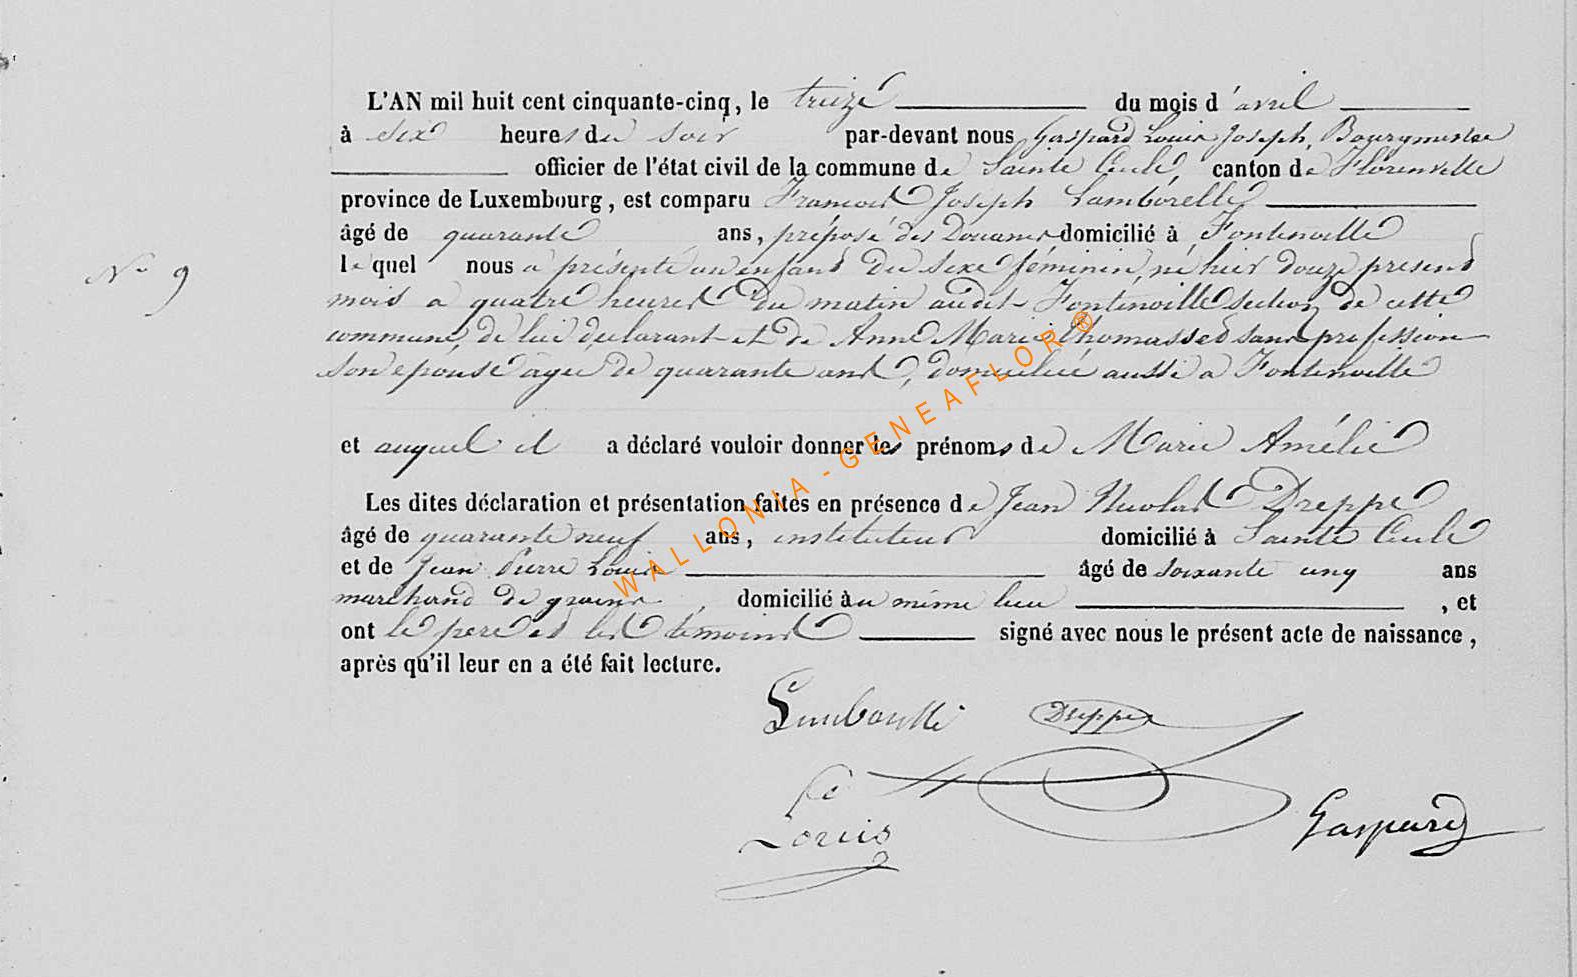 L'AN mil huit cent cinquante-cinq, le treize du mois d'avril
à six heures du soir par-devant nous Gaspard Louis Joseph, Bourgmestre
officier de l'état civil de la commune de Sainte Cecile, canton de Florenville
province de Luxembourg, est comparu François Joseph Lamborelle
âgé de quarante ans, préposé des Douanes domicilié à Fontenoille
lequel nous a présenté un enfant du sexe féminin, né hier douze present
N° 9
mois a quatre heures du matin audit Fontenoille section de cette
commune, de lui declarant et de Anne Marie Thomasset sans profession
son epouse agée de quarante ans, domiciliée aussi a Fontenoille
et auquel il a déclaré vouloir donner les prénoms de Marie Amélie
Les dites déclaration et présentation faites en présence de Jean Nicolas Dreppe
âgé de quarante neuf ans, instituteur domicilié à Sainte Cecile
et de Jean Pierre Louis âgé de soixante cinq ans
marchand de grains, domicilié au même lieu, et
ont le pere et les temoins signé avec nous le présent acte de naissance,
après qu'il leur en a été fait lecture.
WALLONIA - GENEAFLOR ®
Lamborelle Dreppe
Louis
Gaspard